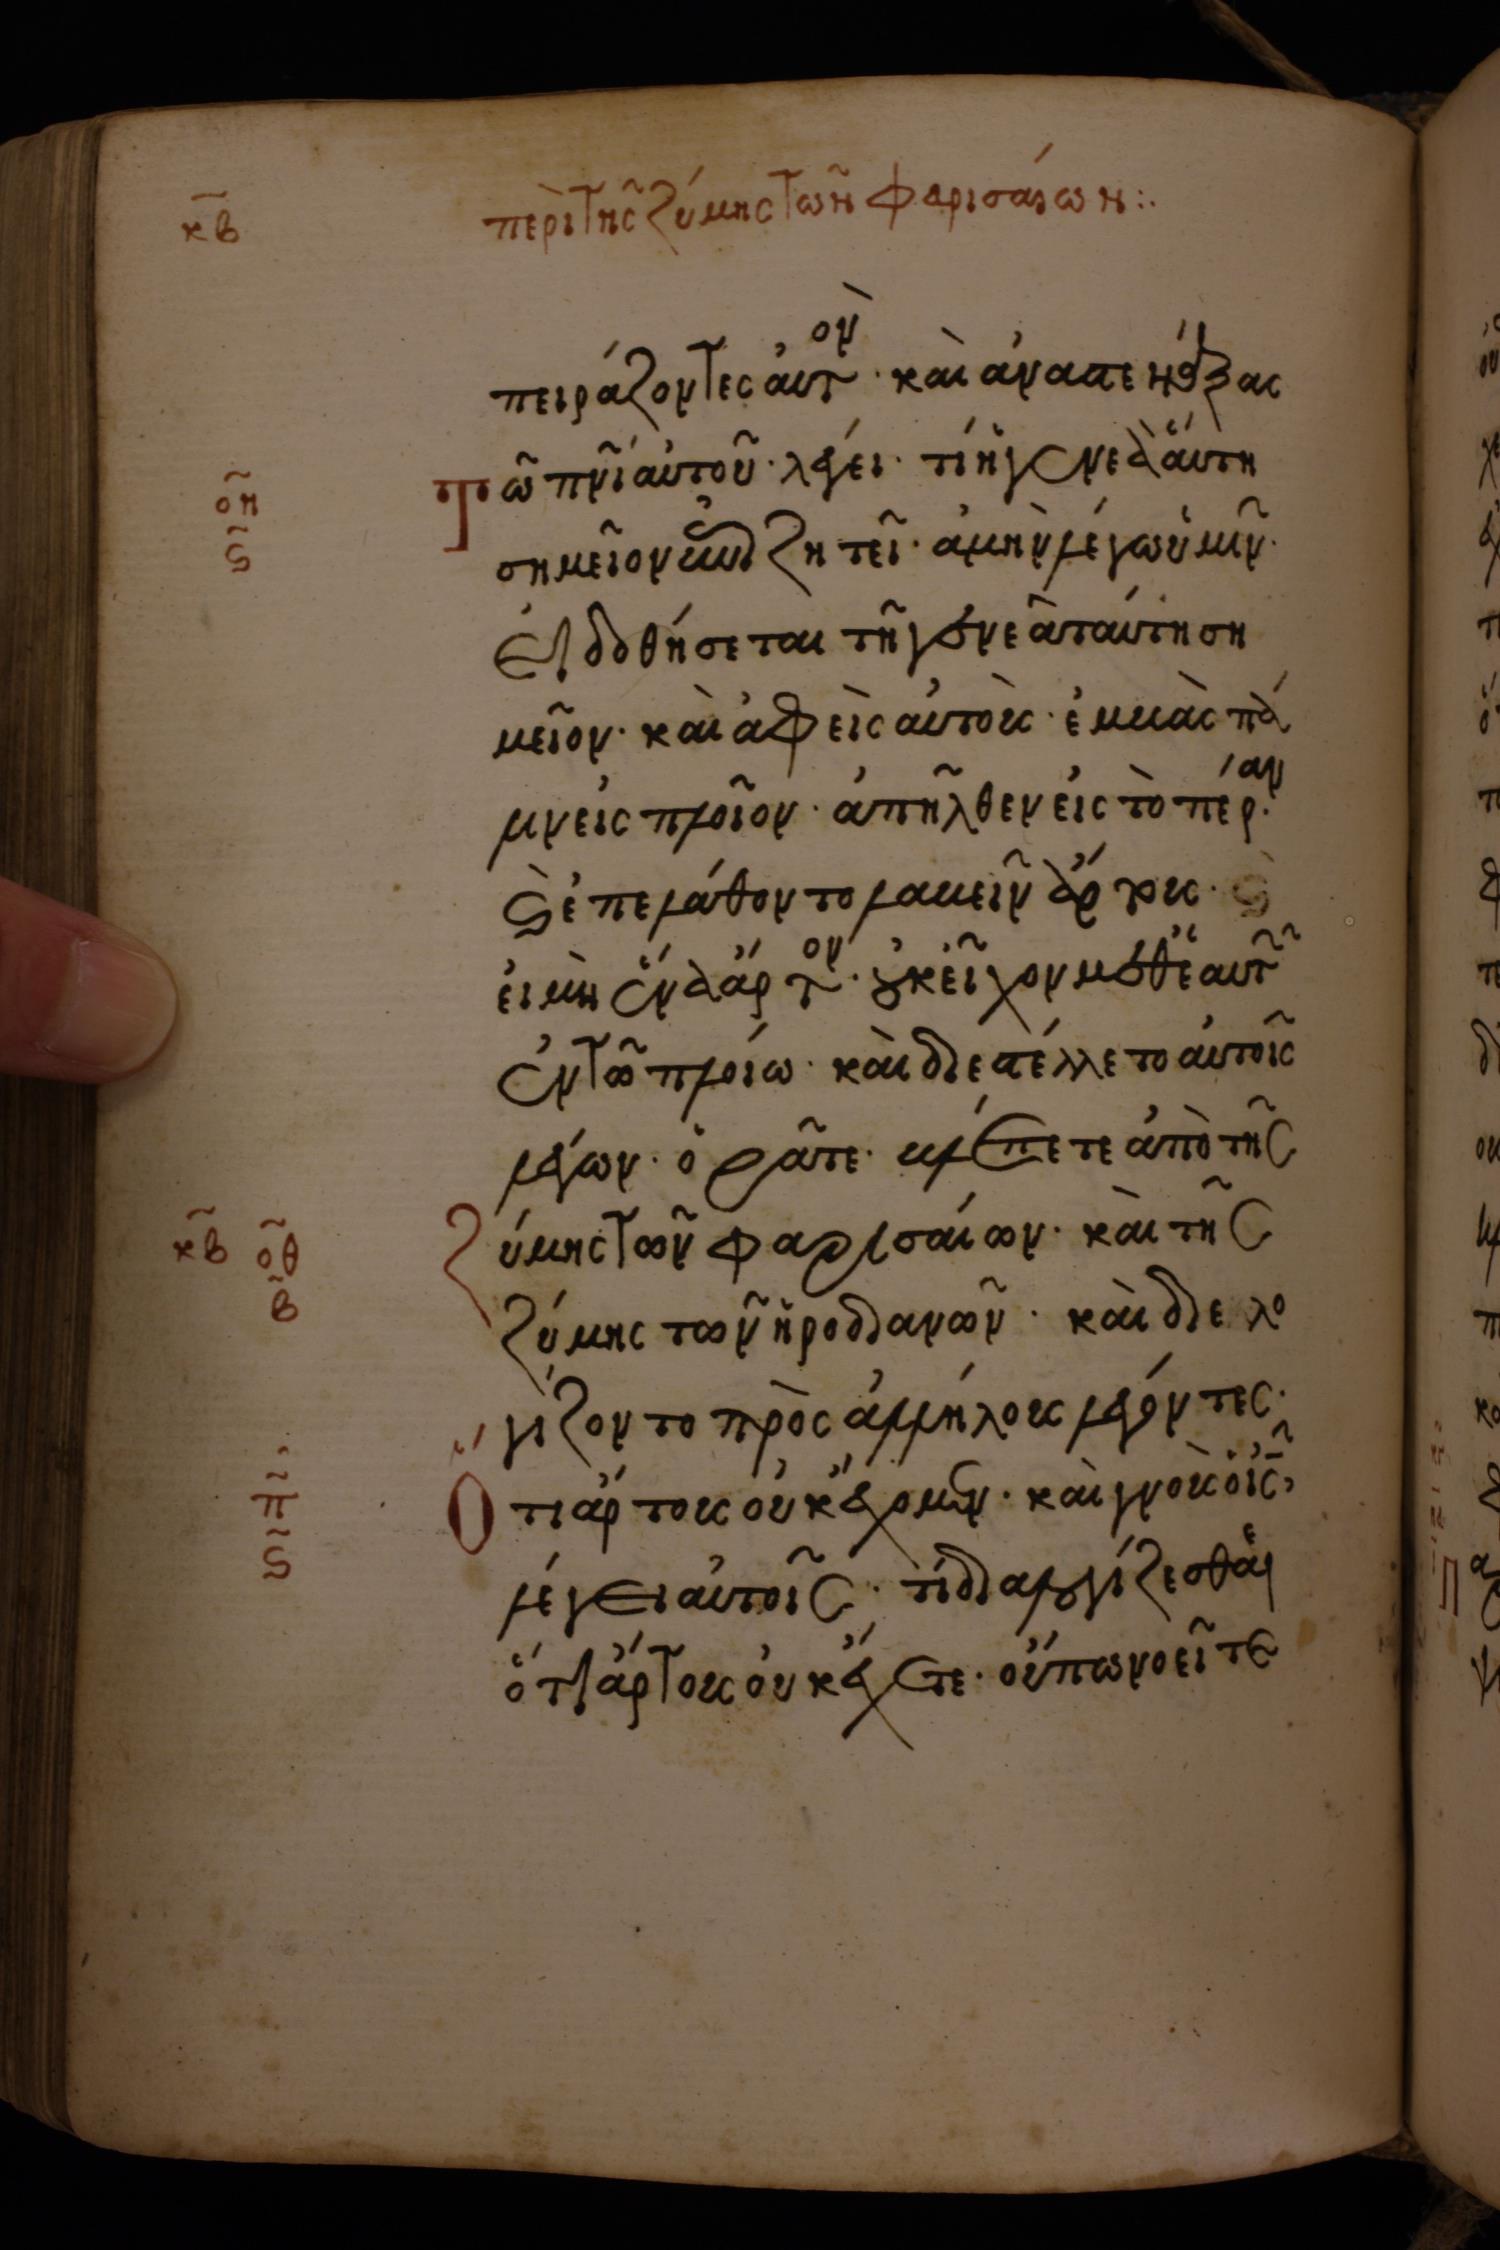 κβ περὶ τῆς ζύμης τῶν φαρισαίων:.
πειράζοντες αὐτὸν· καὶ ἀναστενάξας
τῶ πνῖ αὐτοῦ· λέγει· τί ἡ γενεὰ αὕτη
οη
σημεῖον ἐπιζητεῖ· ἀμὴν λέγω ὑμῖν·
ς
εἰ δοθήσεται τῆ γενεᾶ ταύτη ση
μεῖον· καὶ ἀφεὶς αὐτοὺς· ἐμβὰς πά
λιν εἰς πλοῖον· ἀπῆλθεν εἰς τὸ πέραν·
ϛ ἐπελάθοντο λαβεῖν ἄρτους· ϛ
εἰ μὴ ἕνα ἄρτον· οὐκ εἶχον μεθ' ἑαυτῶν
ἐν τῶ πλοίω· καὶ διεστέλλετο αὐτοῖς
λέγων· ὁρᾶτε· βλέπετε ἀπὸ τῆς
ζύμης τῶν φαρισαίων· καὶ τῆς
κβ οθ
β
ζύμης τῶν ἡροδιανῶν· καὶ διελο
γίζοντο πρὸς ἀλλήλους λέγοντες·
ὅτι ἄρτους οὐκ ἔχομεν· καὶ γνοὺς ὁ ις,
π
ς
λέγει αὐτοῖς· τί διαλογίζεσθαι
ὅτι ἄρτους οὐκ ἔχετε· οὔπω νοεῖτε